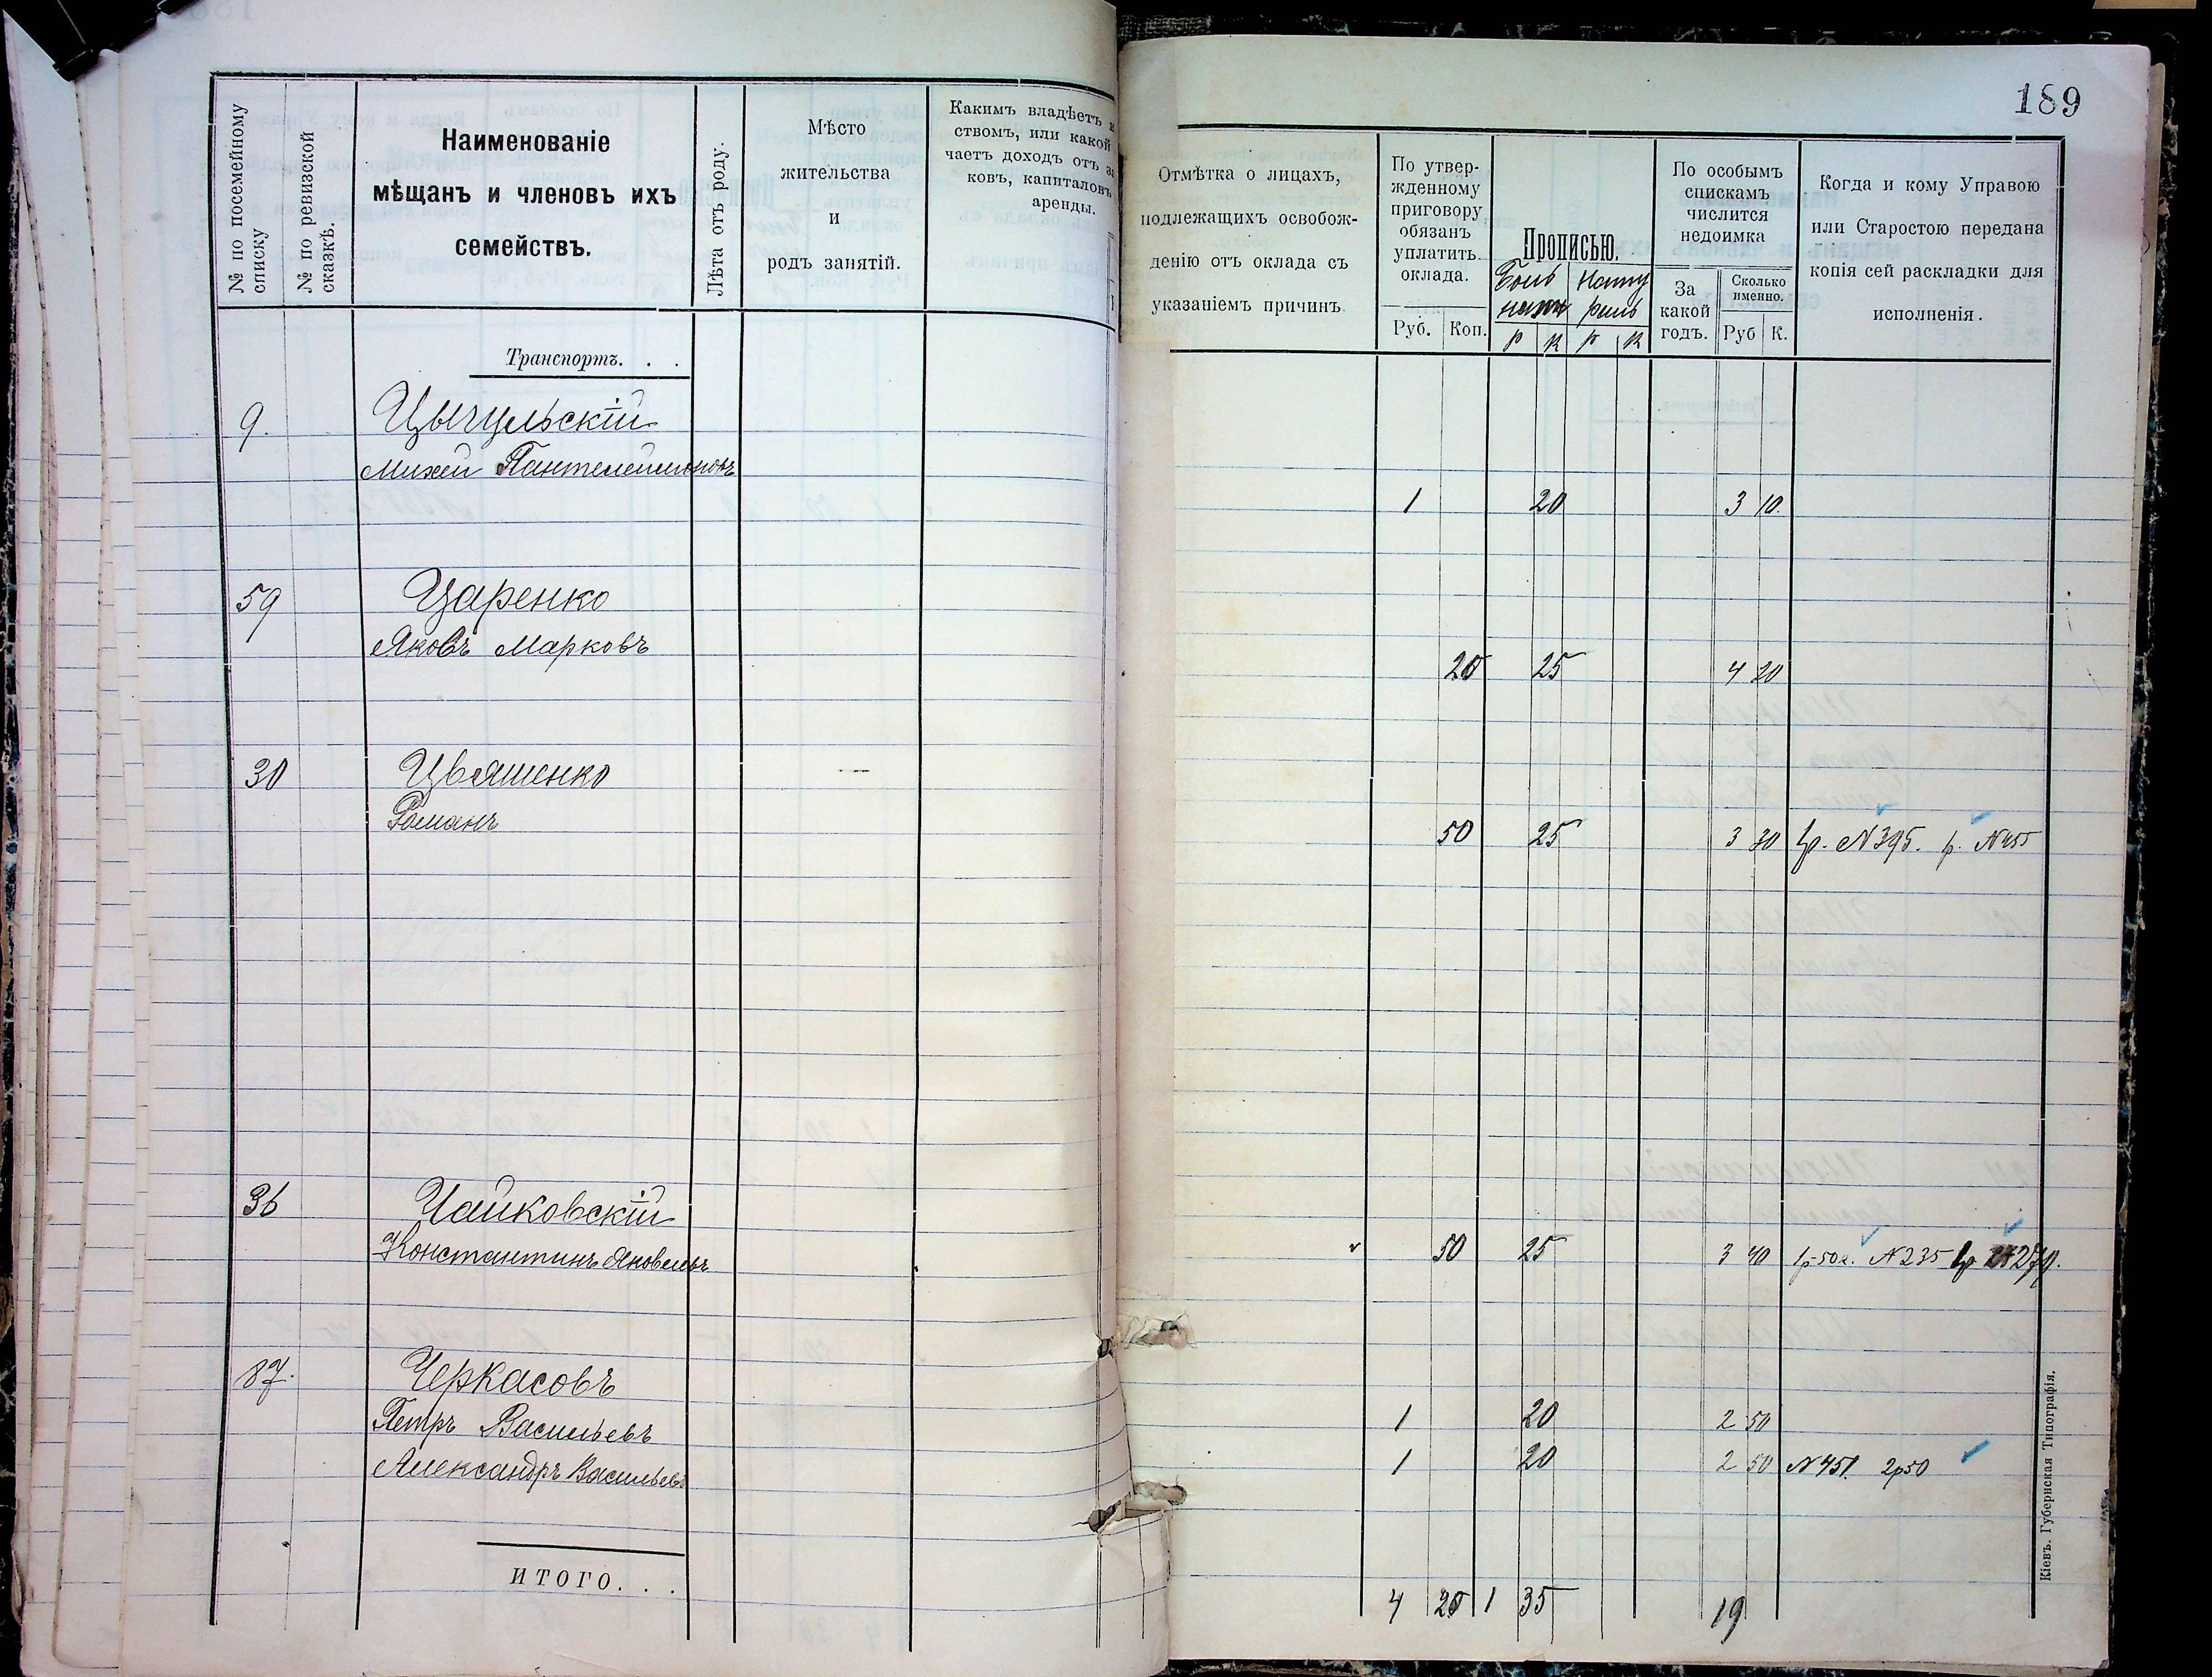 189
№ по посемейному списку
№ по ревизской сказкѣ.
Наименованіе
мѣщанъ и членовъ ихъ
семействъ.
Лѣта отъ роду.
Мѣсто
жительства
и
родъ занятій.
Какимъ владѣетъ
ствомъ, или какой
чаетъ доходъ отъ
ковъ, капиталовъ
аренды.
Отмѣтка о лицахъ,
подлежащихъ освобож-
денію отъ оклада съ
указаніемъ причинъ
По утвер-
жденному
приговору
обязанъ
уплатить
оклада.
Руб. Коп.
Прописью.
Р К Р К
По особымъ
спискамъ
числится
недоимка
За
какой
годъ.
Сколько
именно.
Руб К.
Когда и кому Управою
или Старостою передана
копія сей раскладки для
исполненія.
Транспортъ. . .
9.
Михей Пантелеймоновъ 1 20 3 10.
59 Царенко
Яковъ Марковъ 25 4 20
30 Цвяшенко
Романъ 50 25 3 30 N 395.
36 Чайковскій
Константинъ Яковлевъ 50 25 3 40 N 235 279.
87. Черкасовъ
Петръ Васильевъ 1 20 2 50
Александръ Васильевъ 1 20 2 50 N 451. 2р50
ИТОГО. . . 4 1 35 19
Кіевъ. Губернская Типографія.